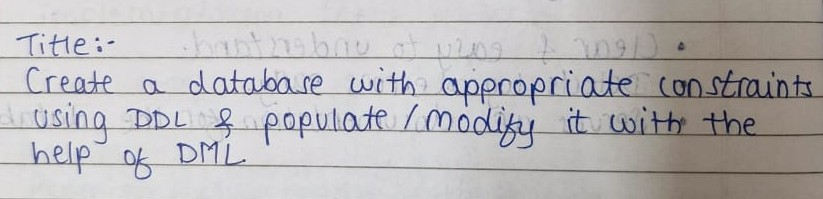 Title:-
Create a database with appropriate constraints
using DDL & populate / modify it with the
help of DML